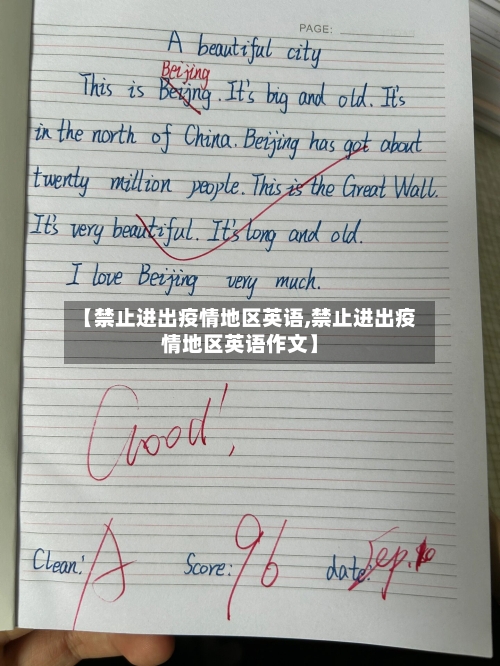 PAGE:
A beautiful city
Beijing
This is Beijng. It's big and old. It's
in the north of China. Beijing has got about
twenty million people. This is the Great Wall.
It's very beautiful. It's long and old.
I love Beijing very much.
【禁止进出疫情地区英语,禁止进出疫
情地区英语作文】
Good!
Clean: A Score: 96 date: Sep.